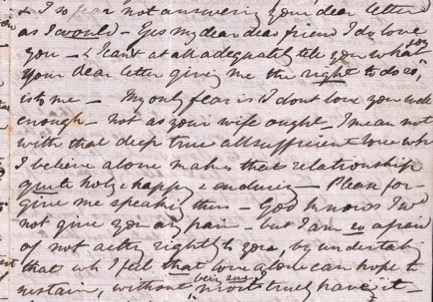 & I so fear not answering your dear letter
as I would – Yes my dear dear friend I do love
you – & I can't at all adequately tell you what joy
your dear letter giving me the right to do so,
is to me – My only fear is I dont love you well
enough – not as your wife ought – I mean not
with that deep true allsufficient love wh
I believe alone makes that relationship
quite holy & happy & enduring – Please for-
give me speaking thus – God knows I wd
not give you any pain – but I am so afraid
of not acting rightly to you by undertaking
that wh I feel that love alone can hope to
sustain, without being sure I most truly have it –